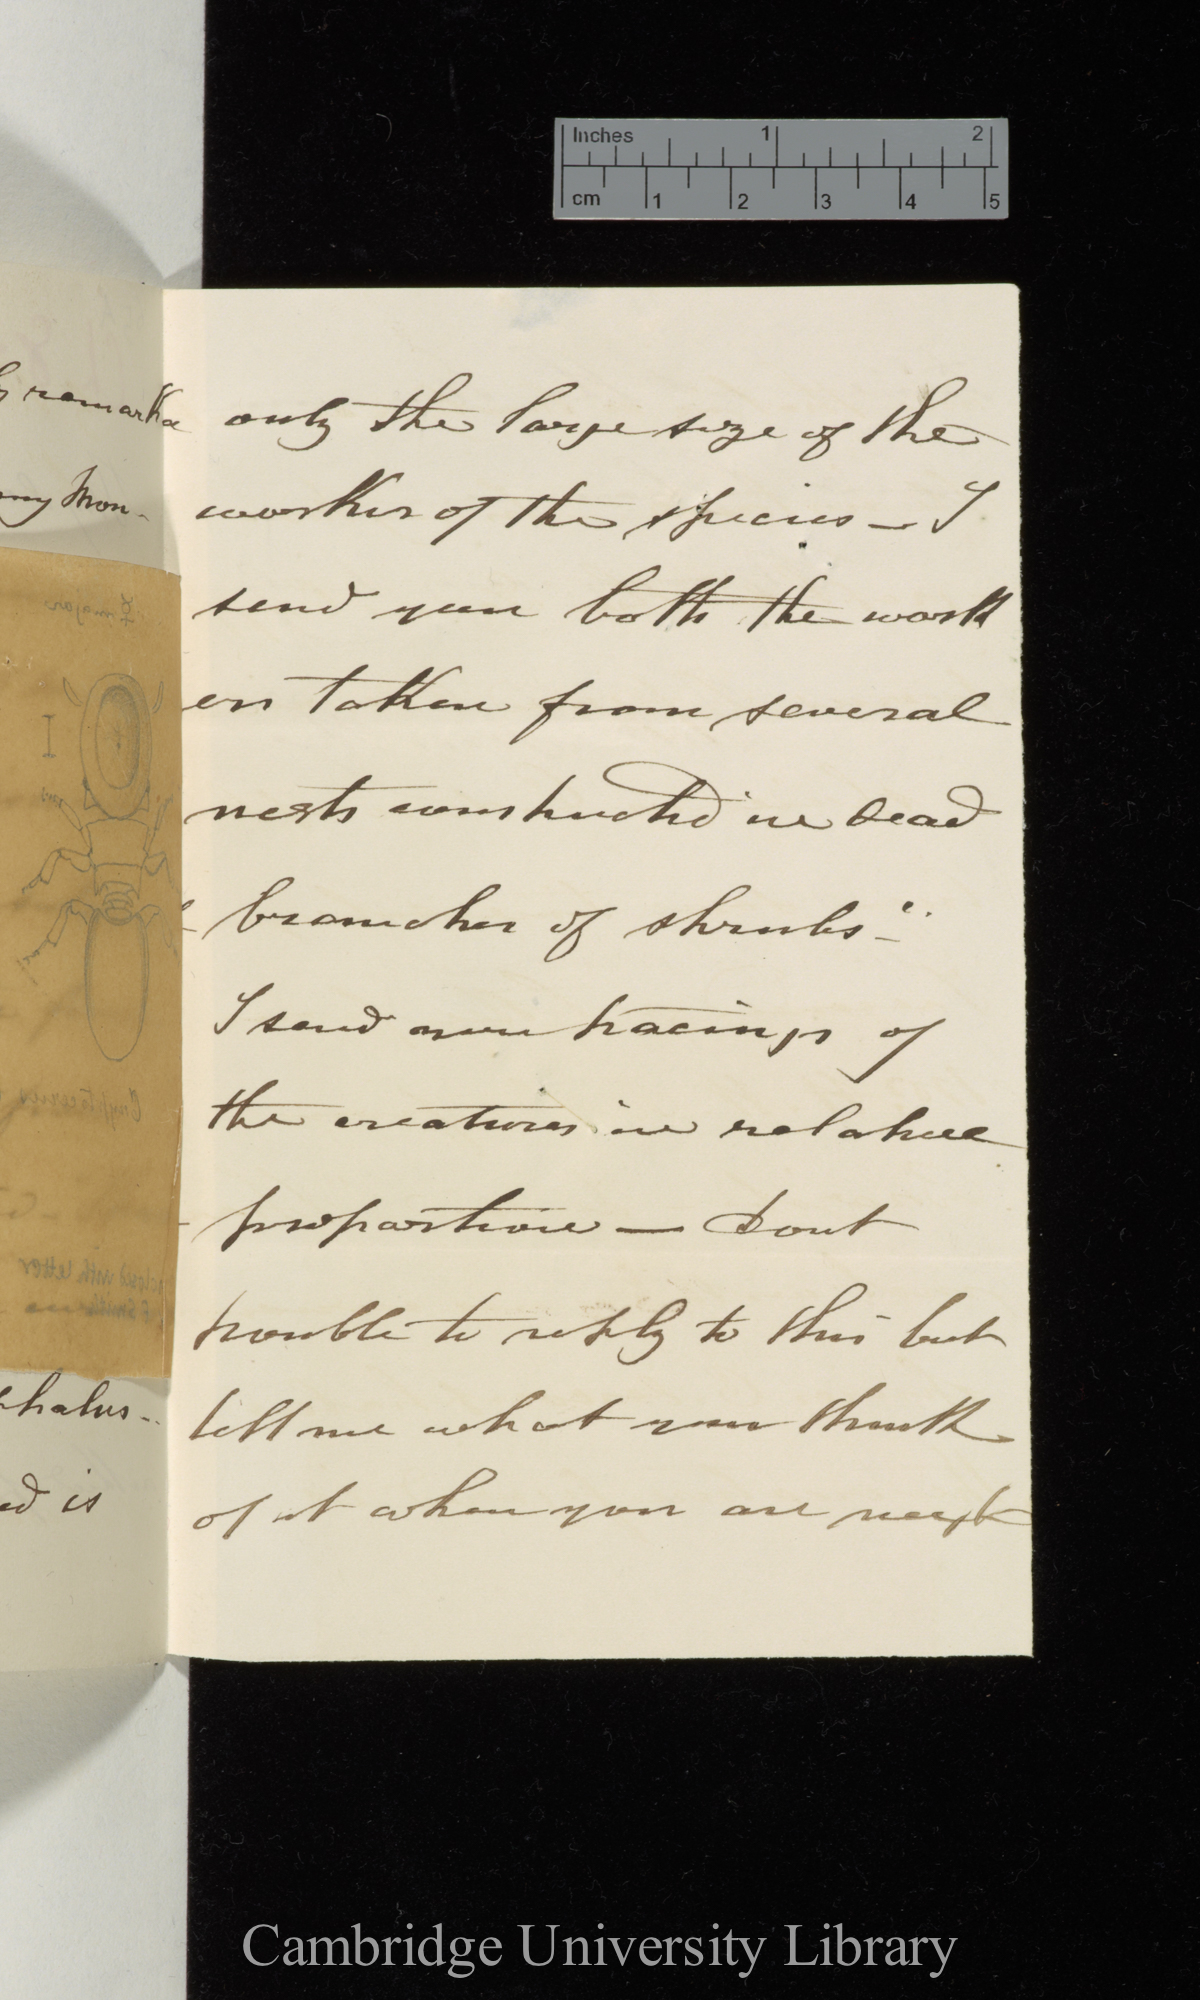 Inches 1 2
cm 1 2 3 4 5
remarka
my Mon-
☿ major
Cryptocerus
enclosed with letter
F Smith
phalus-
ed is
only the large size of the
worker of the species — I
send you both the work
ers taken from several
nests constructed in dead
branches of shrubs"
I send you tracings of
the creatures in relative
proportion — dont
trouble to reply to this but
tell me what you think
of it when you are next
Cambridge University Library